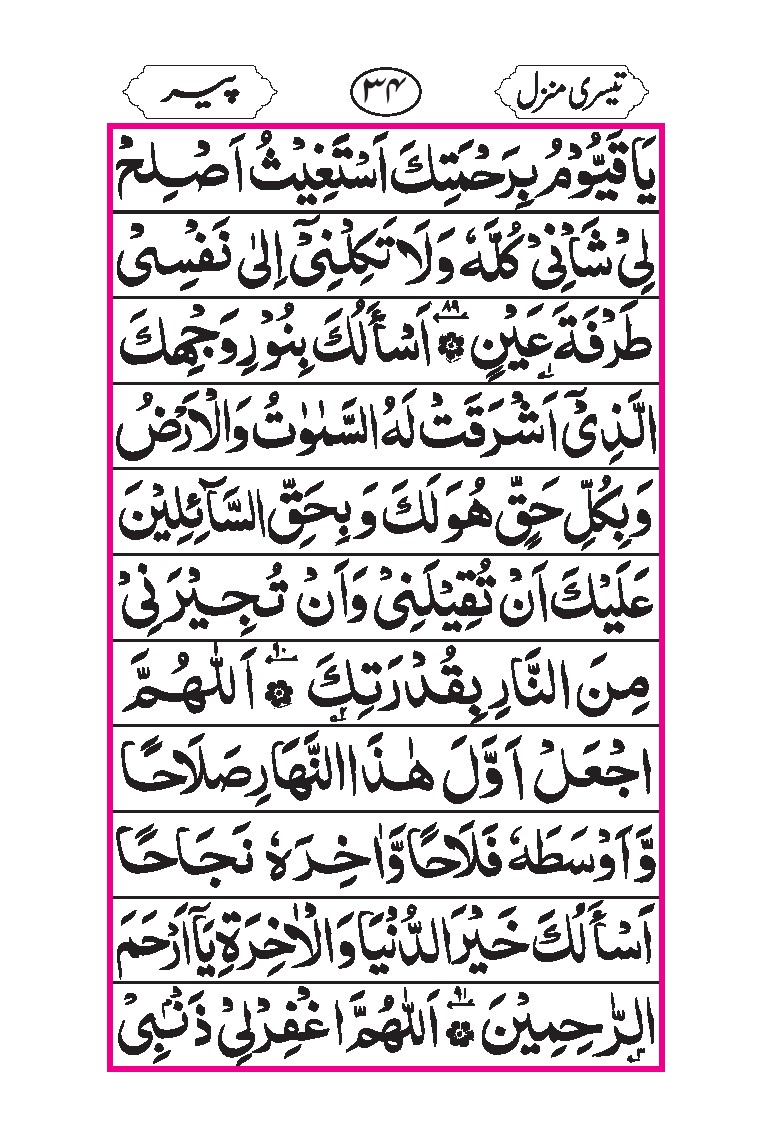 تیسری منزل ۳۴ پیر
يَا قَيُّوْمُ بِرَحْمَتِكَ اَسْتَغِيْثُ اَصْلِحْ
لِيْ شَأْنِيْ كُلَّهٗ وَلَا تَكِلْنِيْٓ اِلٰى نَفْسِيْ
طَرْفَةَ عَيْنٍ ۸۹ اَسْأَلُكَ بِنُوْرِ وَجْهِكَ
الَّذِيْٓ اَشْرَقَتْ لَهُ السَّمٰوٰتُ وَالْاَرْضُ
وَبِكُلِّ حَقٍّ هُوَ لَكَ وَبِحَقِّ السَّآئِلِيْنَ
عَلَيْكَ اَنْ تُقِيْلَنِيْ وَاَنْ تُجِيْرَنِيْ
مِنَ النَّارِ بِقُدْرَتِكَ ۹۰ اَللّٰهُمَّ
اجْعَلْ اَوَّلَ هٰذَا النَّهَارِ صَلَاحًا
وَّاَوْسَطَهٗ فَلَاحًا وَّاٰخِرَهٗ نَجَاحًا
اَسْأَلُكَ خَيْرَ الدُّنْيَا وَالْاٰخِرَةِ يَآ اَرْحَمَ
الرّٰحِمِيْنَ ۹۱ اَللّٰهُمَّ اغْفِرْ لِيْ ذَنْۢبِيْ